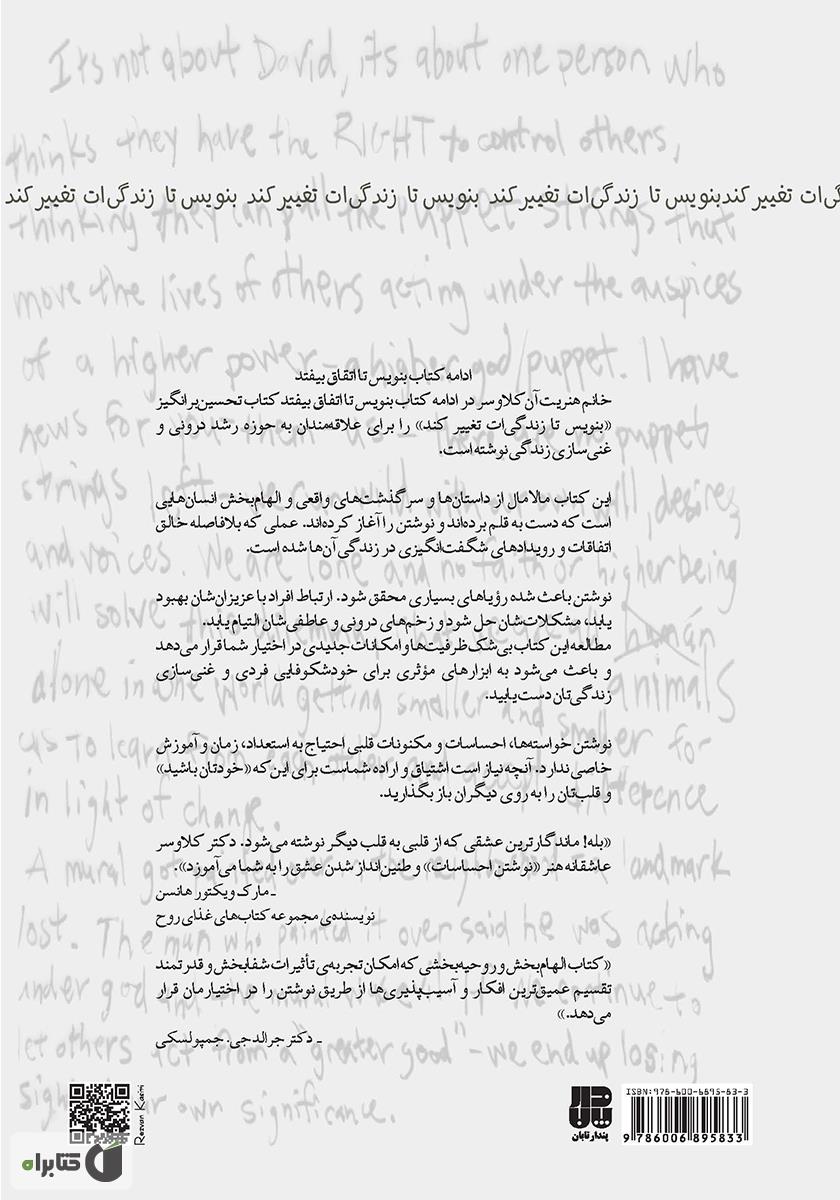 Its not about David, its about one person who
thinks they have the RIGHT to control others,
گی‌ات تغییر کندبنویس تا زندگی‌ات تغییر کند بنویس تا زندگی‌ات تغییر کند بنویس تا زندگی‌ات تغییر کند
thinking they can pull the puppet strings that
move the lives of others acting under the auspices
of a higher power - a higher god/puppet. I have
ادامه کتاب بنویس تا اتفاق بیفتد
خانم هنریت آن کلاوسر در ادامه کتاب بنویس تا اتفاق بیفتد کتاب تحسین‌برانگیز
news for
puppet
«بنویس تا زندگی‌ات تغییر کند» را برای علاقه‌مندان به حوزه رشد درونی و
غنی‌سازی زندگی نوشته است.
strings left
desires
این کتاب مالامال از داستان‌ها و سرگذشت‌های واقعی و الهام‌بخش انسان‌هایی
است که دست به قلم برده‌اند و نوشتن را آغاز کرده‌اند. عملی که بلافاصله خالق
اتفاقات و رویدادهای شگفت‌انگیزی در زندگی آن‌ها شده است.
and voices. We are lone and no father higher being
نوشتن باعث شده رؤیاهای بسیاری محقق شود. ارتباط افراد با عزیزان‌شان بهبود
یابد، مشکلات‌شان حل شود و زخم‌های درونی و عاطفی‌شان التیام یابد.
will solve
human
مطالعه این کتاب بی‌شک ظرفیت‌ها و امکانات جدیدی در اختیار شما قرار می‌دهد
و باعث می‌شود به ابزارهای مؤثری برای خودشکوفایی فردی و غنی‌سازی
زندگی‌تان دست یابید.
alone in one world getting smaller and smaller for
animals
نوشتن خواسته‌ها، احساسات و مکنونات قلبی احتیاج به استعداد، زمان و آموزش
خاصی ندارد. آنچه نیاز است اشتیاق و اراده شماست برای این که «خودتان باشید»
و قلب‌تان را به روی دیگران باز بگذارید.
us to learn
difference
in light of change.
«بله! ماندگارترین عشقی که از قلبی به قلب دیگر نوشته می‌شود. دکتر کلاوسر
عاشقانه هنر «نوشتن احساسات» و طنین‌انداز شدن عشق را به شما می‌آموزد».
A mural got
landmark
ـ مارک ویکتور هانسن
نویسنده‌ی مجموعه کتاب‌های غذای روح
lost. The man who painted it over said he was acting
«کتاب الهام‌بخش و روحیه‌بخشی که امکان تجربه‌ی تأثیرات شفابخش و قدرتمند
تقسیم عمیق‌ترین افکار و آسیب‌پذیری‌ها از طریق نوشتن را در اختیارمان قرار
می‌دهد.»
under god
continue to
ـ دکتر جرالد جی. جمپولسکی
let others act from a "greater good" - we end up losing
sight
our own significance.
ISBN: 978-600-6895-83-3
9 786006 895833
پندار تابان
Rezvan Karimi
کتابراه